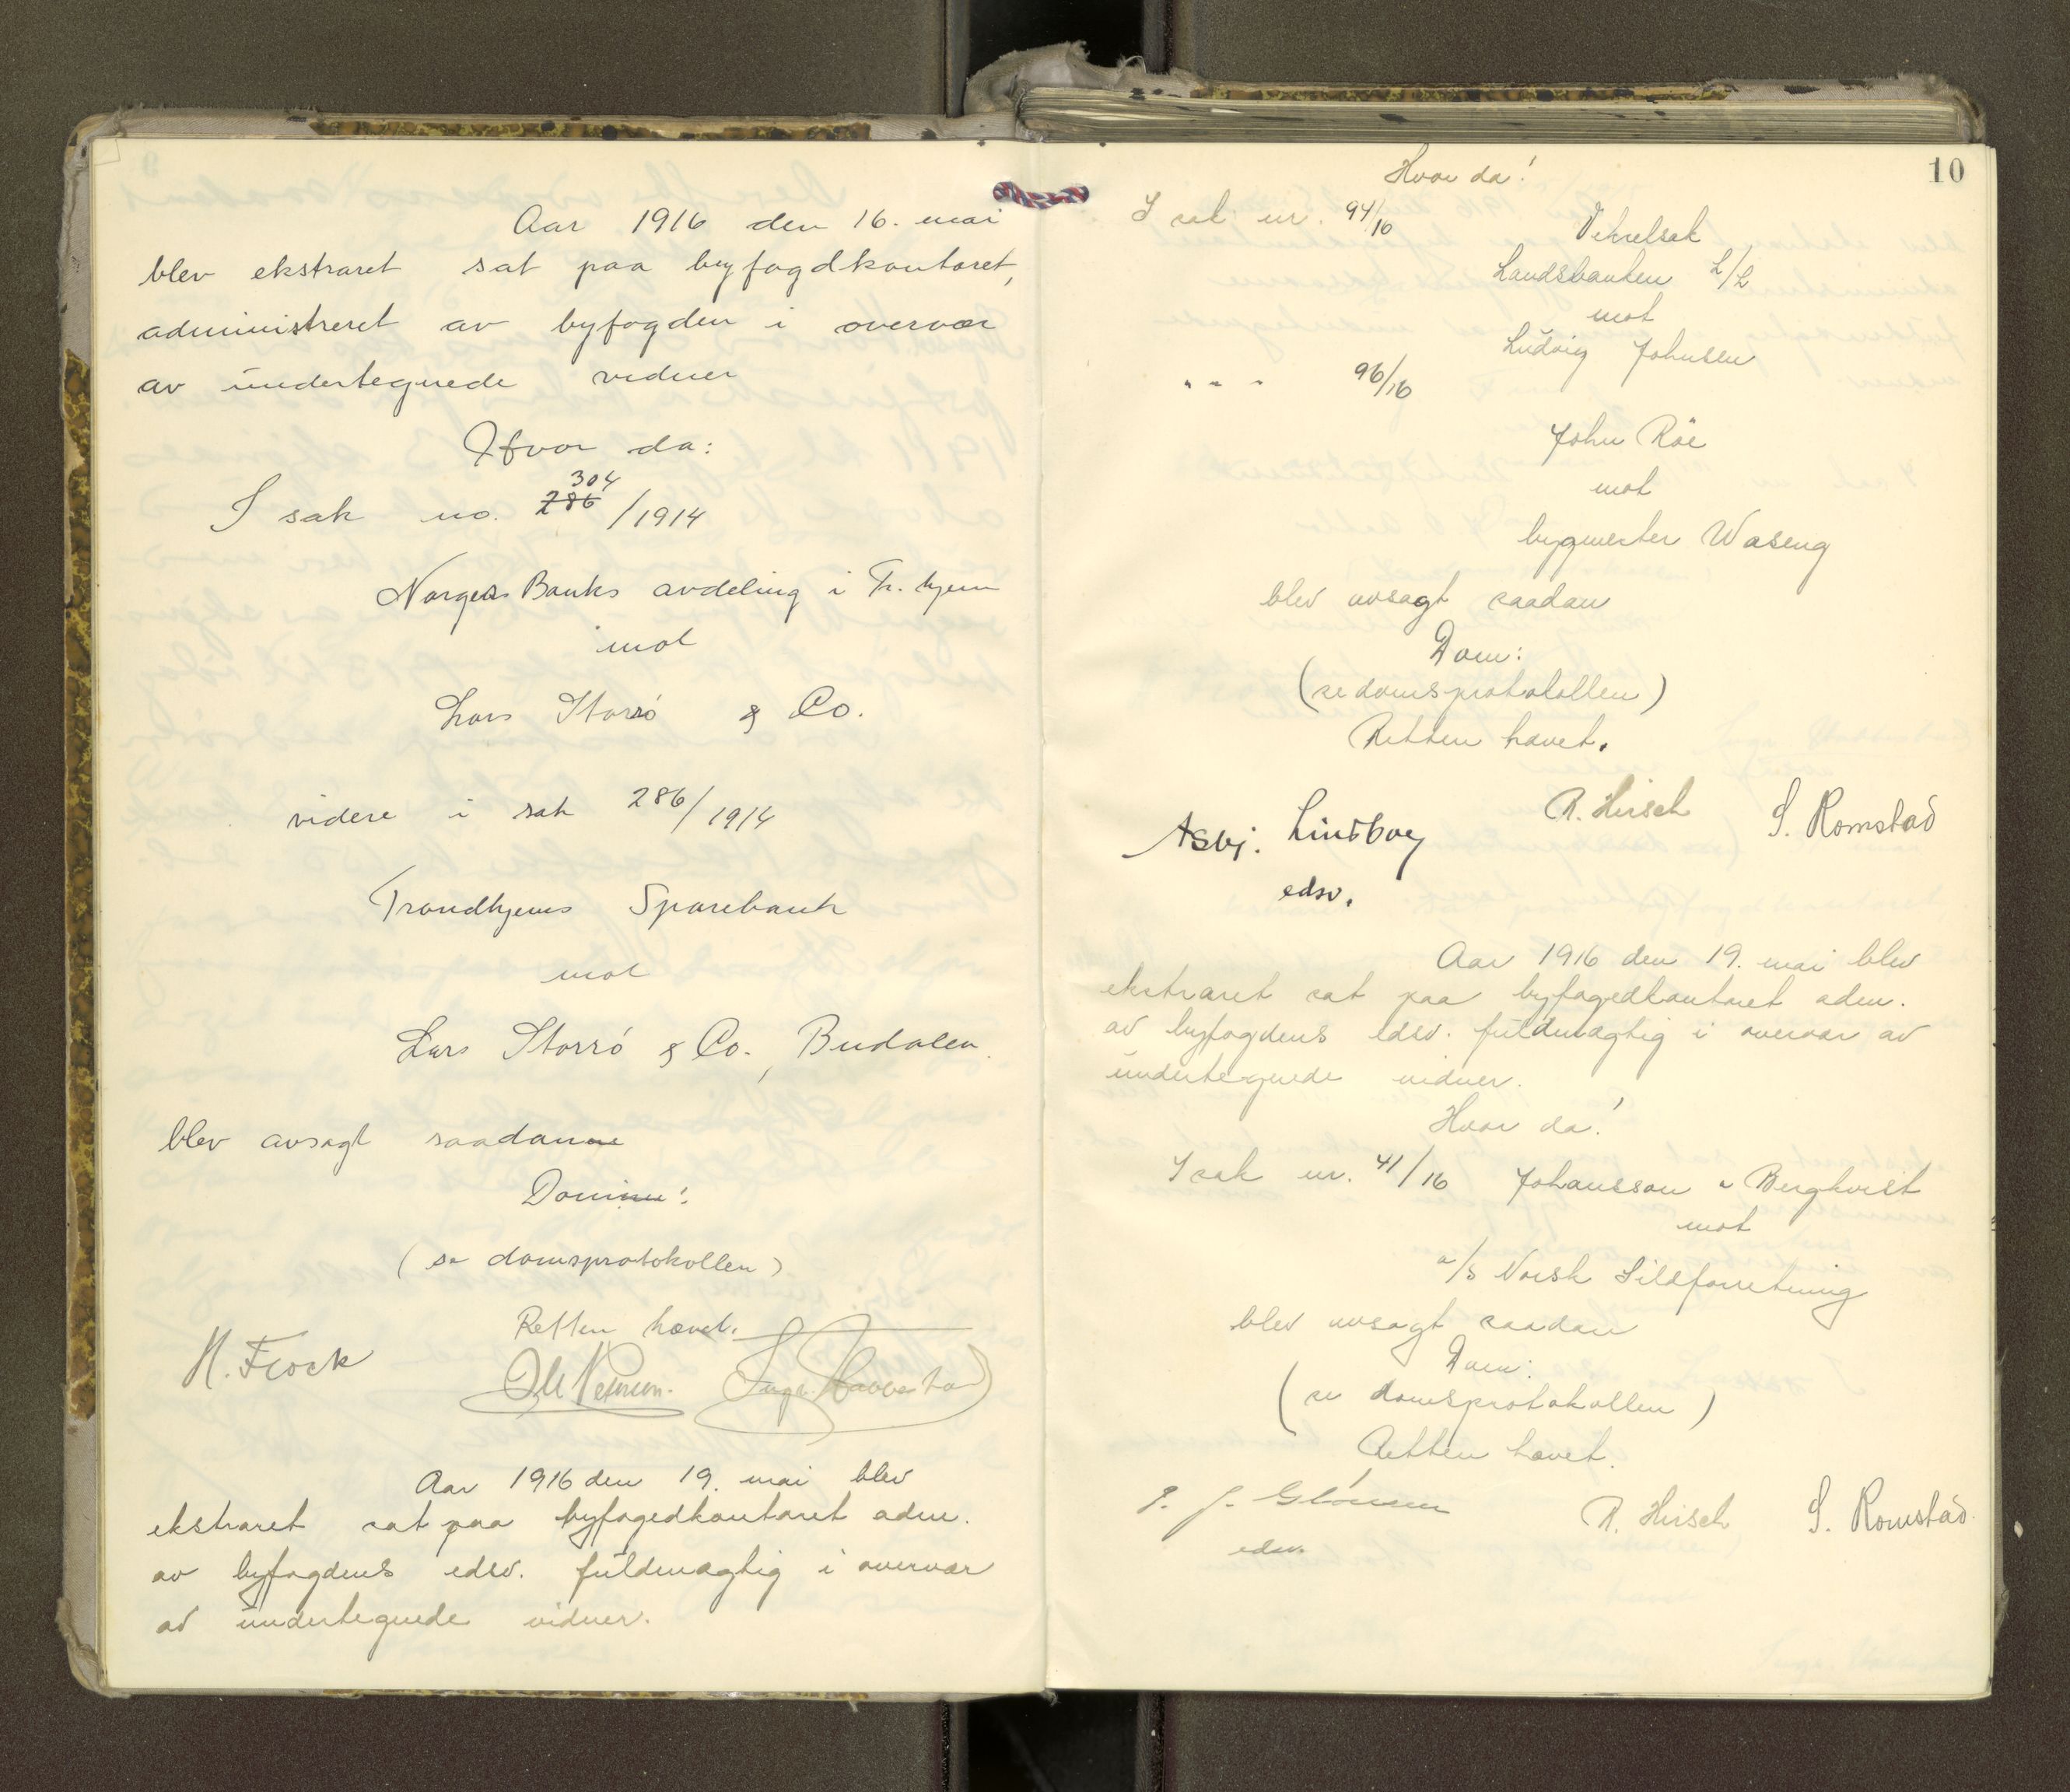 Aar 1916 den 16. mai
blev ekstraret sat paa byfogdkontoret,
administreret av byfogden i overvær
av undertegnede vidner
Hvor da:
304
I sak no. 286/1914
Norges Banks avdeling i Tr.hjem
mot
Lars Storrö & Co.
videre i sak 286/1914
Trondhjems Sparebank
mot
Lars Storrö & Co., Budalen
blev avsagt saadanne
Domme:
(se domsprotokollen)
Retten hævet.
H. Frock
Aar 1916 den 19. mai blev
ekstraret sat paa byfogedkontoret adm.
av byfogdens edsv. fuldmægtig i overvær
av undertegnede vidner.
10
Hvor da!
I sak nr. 94/16
Vekselsak
Landsbanken L/L
mot
Ludvig Johnsen
" " " 96/16
John Röe
mot
bygmester Waseng
blev avsagt saadan
Dom:
(se domsprotokollen)
Retten hævet.
R. Hirsch S. Romstad
Asbj. Lindboe
edsv.
Aar 1916 den 19. mai blev
ekstraret sat paa byfogedkontoret adm.
av byfogdens edsv. fuldmægtig i overvær av
undertegnede vidner.
Hvor da!
I sak nr. 41/16 Johansson & Bergkvist
mot
a/s Norsk Sildforretning
blev avsagt saadan
Dom:
(se domsprotokollen)
Retten hævet.
R. Hirsch S. Romstad.
edsv.